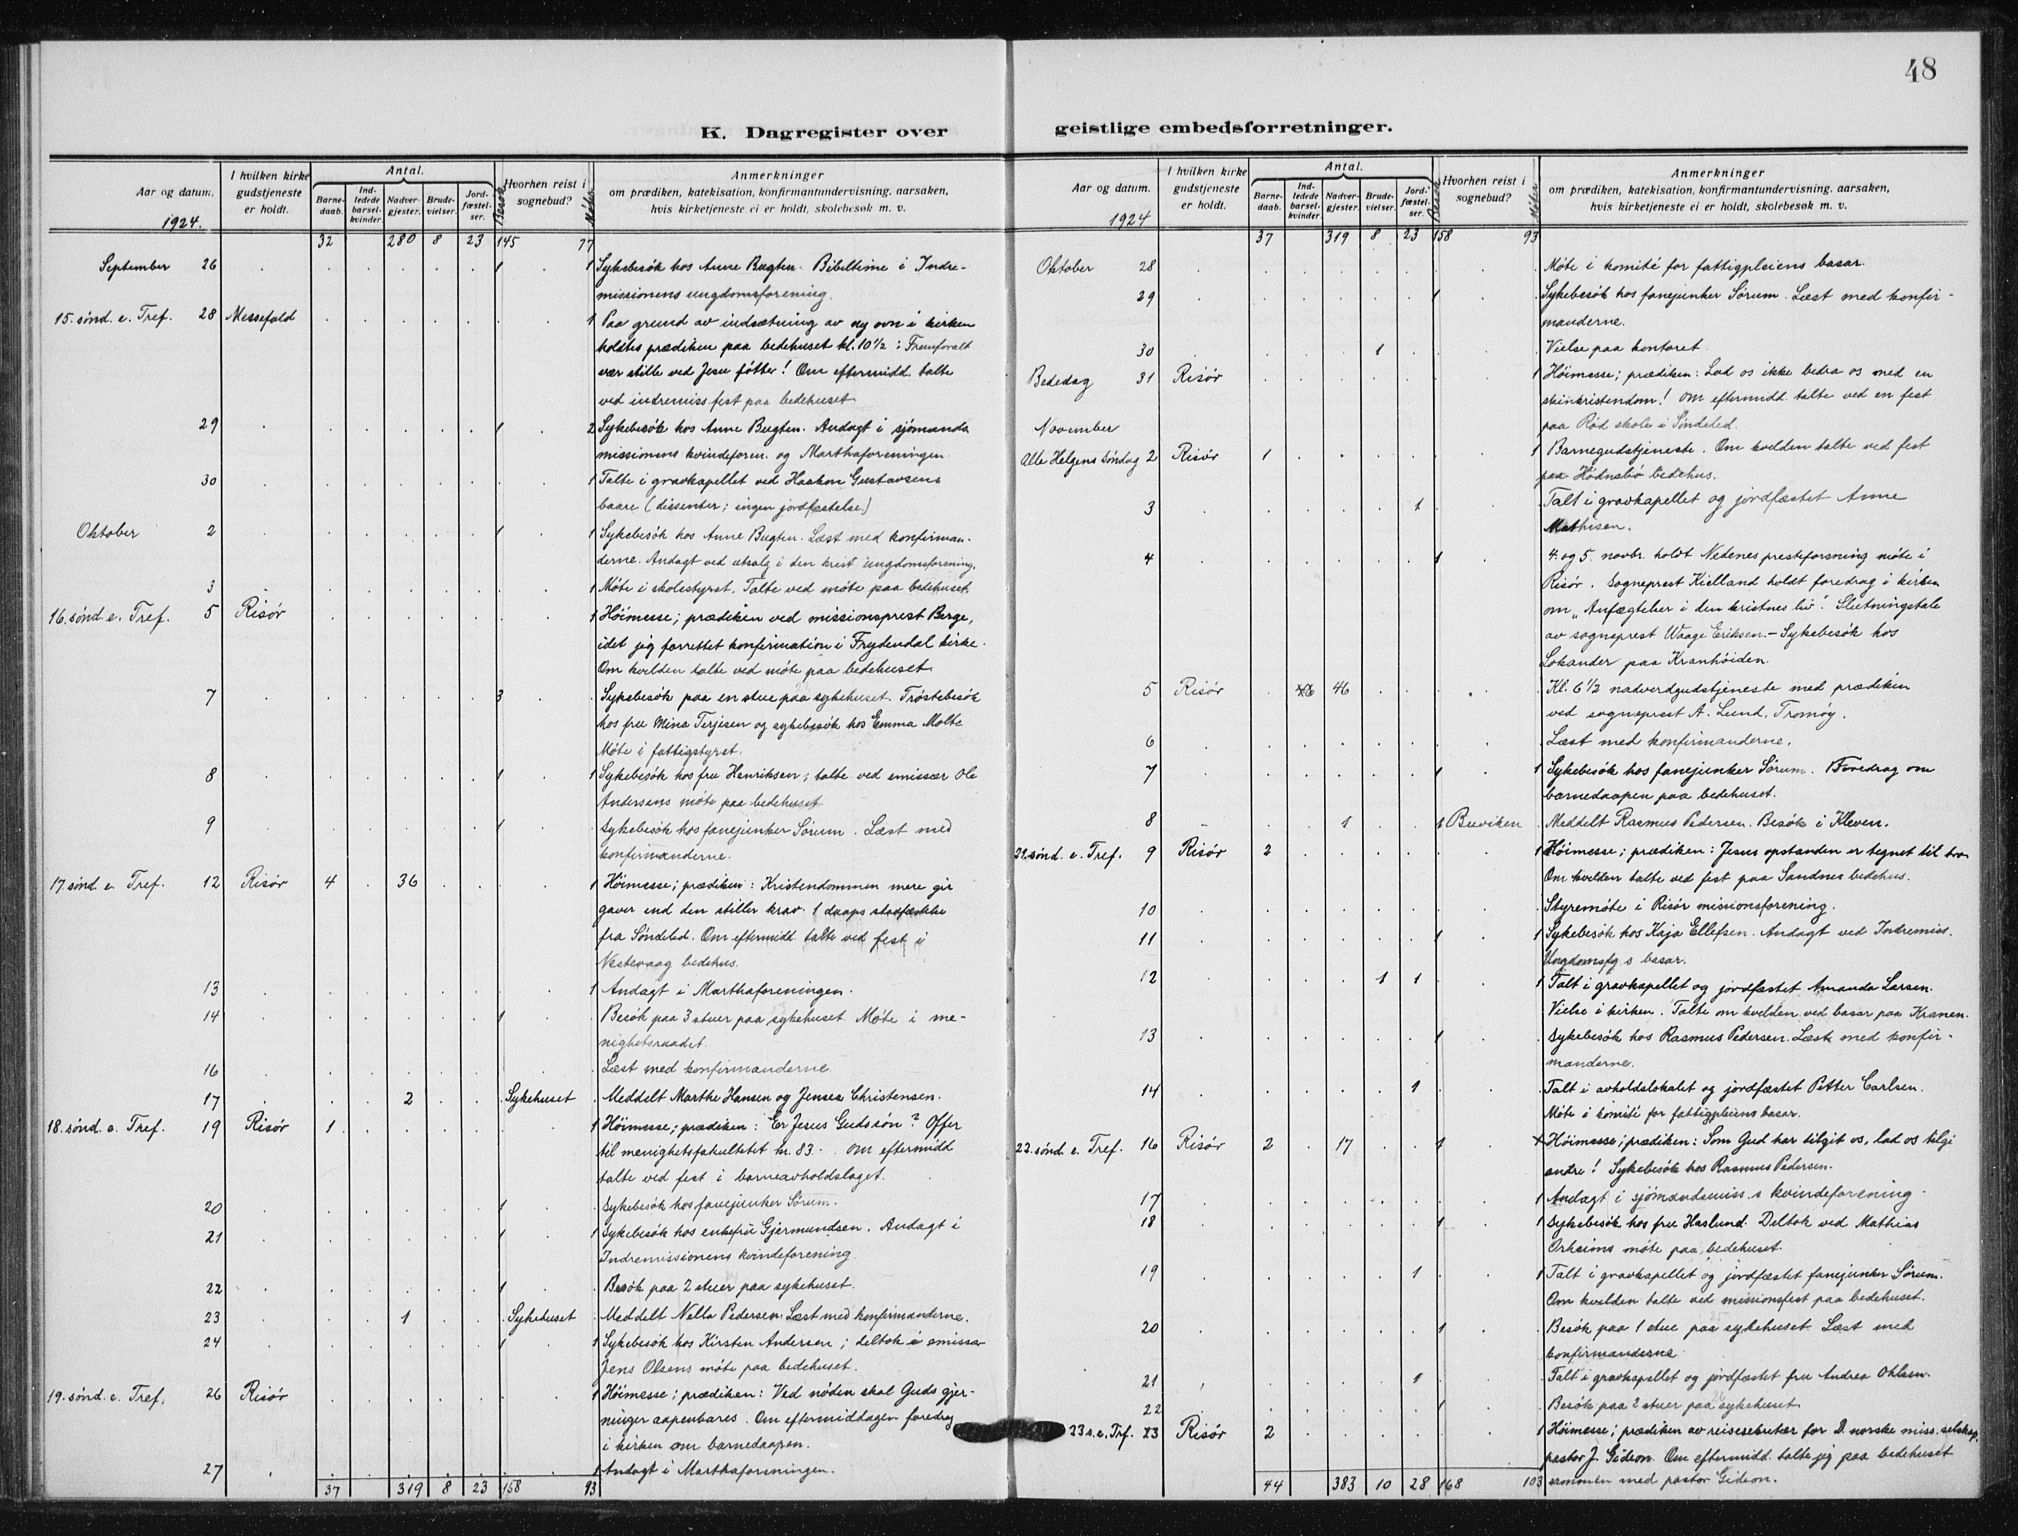 48
K. Dagregister over
Aar og datum.
I hvilken kirke gudstjeneste er holdt.
Antal.
Barnedaab.
Indledede barselkvinder
Nadvergjester.
Brudevielser.
Jordfæstelser.
Besøk
Hvorhen reist i sognebud?
Møter
Anmerkninger
om prædiken, katekisation, konfirmantundervisning, aarsaken,
hvis kirketjeneste ei er holdt, skolebesøk m. v.
1924.
32 280 8 23 145 77
September 26 1 1 Sykebesök hos Anne Bugten. Bibeltime i Indre-
missionens ungdomsforening.
15. sönd. e. Tref. 28 Messefald 1 Paa grund av indsætning av ny ovn i kirken
holdtes prædiken paa bedehuset kl. 10½: Fremforalt
vær stille ved Jesu fötter! Om eftermidd. talte
ved indremiss. fest paa bedehuset
29 1 2 Sykebesök hos Anne Bugten. Andagt i sjömands
missionens kvindeforen. og Marthaforeningen.
30 1 Talte i gravkapellet ved Haakon Gustavsens
baare (dissenter; ingen jordfæstelse)
Oktober 2 1 1 Sykebesök hos Anne Bugten. Læst med konfirman-
derne. Andagt ved utsalg i den krist. ungdomsforening.
3 1 Möte i skolestyret. Talte ved möte paa bedehuset.
16. sönd. e. Tref. 5 Risör 1 Höimesse; prædiken ved missionsprest Berge,
idet jeg forrettet konfirmation i Frydendal kirke.
Om kvelden talte ved möte paa bedehuset
7 3 Sykebesök paa en stue paa sykehuset. Tröstebesök
hos fru Mina Terjesen og sykebesök hos Emma Molte
Möte i fattigstyret.
8 1 1 Sykebesök hos fru Henriksen; talte ved emissær Ole
Andersens möte paa bedehuset
9 1 Sykebesök hos fanejunker Sörum. Læst med
konfirmanderne.
17. sönd. e. Tref. 12 Risör 4 36 1 Höimesse; prædiken: Kristendommen mere gir
gaver end den stiller krav. 1 daaps stadfæstelse
fra Söndeled. Om eftermidd. talte ved fest i
Nestevaag bedehus.
13 1 Andagt i Marthaforeningen.
14 1 Besök paa 3 stuer paa sykehuset. Möte i me-
nighetsraadet.
16 Læst med konfirmanderne
17 2 Sykehuset Meddelt Marthe Hansen og Jensea Christensen.
18. sönd. e. Tref. 19 Risör 1 1 Höimesse; prædiken: Er Jesus Guds sön? Offer
til menighetsfakultetet kr. 83. Om eftermidd
talte ved fest i barneavholdslaget.
20 1 Sykebesök hos fanejunker Sörum.
21 1 1 Sykebesök hos enkefru Gjermundsen. Andagt i
Indremissionens kvindeforening
22 1 Besök paa 2 stuer paa sykehuset.
23 1 Sykehuset Meddelt Nella Pedersen. Læst med konfirmanderne.
24 1 1 Sykebesök hos Kirsten Andersen; deltok i emissær
Jens Olsens möte paa bedehuset.
19. sönd. e. Tref. 26 Risör 1 Höimesse; prædiken: Ved nöden skal Guds gjer-
ninger aapenbares. Om eftermiddagen foredrag
i kirken om barnedaapen.
27 1 Andagt i Marthaforeningen.
37 319 8 23 158 93
geistlige embedsforretninger.
Aar og datum.
I hvilken kirke gudstjeneste er holdt.
Antal.
Barnedaab.
Indledede barselkvinder
Nadvergjester.
Brudevielser.
Jordfæstelser.
Besøk
Hvorhen reist i sognebud?
Møter
Anmerkninger
om prædiken, katekisation, konfirmantundervisning, aarsaken,
hvis kirketjeneste ei er holdt, skolebesøk m. v.
1924
37 319 8 23 158 93
Oktober 28 Möte i komité for fattigpleiens basar.
29 1 Sykebesök hos fanejunker Sörum. Læst med konfir-
manderne.
30 1 Vielse paa kontoret
Bededag 31 Risör 1 Höimesse; prædiken: Lad os ikke bedra os med en
skinkristendom! Om eftermidd. talte ved en fest
paa Röd skole i Söndeled.
November
Alle Helgens Söndag 2 Risör 1 1 Barnegudstjeneste. Om kvelden talte ved fest
paa Hödnebö bedehus.
3 1 Talt i gravkapellet og jordfæstet Anne
Mathisen.
4 1 4. og 5. novbr. holdt Nedenes presteforening möte i
Risör. Sogneprest Kielland holdt foredrag i kirken
om „Anfægtelser i den kristnes liv". Slutningstale
av sogneprest Waage Eriksen. - Sykebesök hos
Lokander paa Kranhöiden.
5 Risör 46 Kl. 6½ nadverdgudstjeneste med prædiken
ved sogneprest A. Lund, Tromöy.
6 Læst med konfirmanderne.
7 1 1 Sykebesök hos fanejunker Sörum. Foredrag om
barnedaapen paa bedehuset.
8 1 1 Buviken Meddelt Rasmus Pedersen. Besök i Kleven.
21. sönd. e. Tref. 9 Risör 2 1 Höimesse; prædiken: Jesus opstanden er tegnet til tro
Om kvelden talte ved fest paa Sandnes bedehus.
10 Styremöte i Risör missionsforening.
11 1 1 Sykebesök hos Kaja Ellefsen. Andagt ved Indremiss.
Ungdomsfg.s basar.
12 1 1 1 Talt i gravkapellet og jordfæstet Amanda Larsen.
Vielse i kirken. Talte om kvelden ved basar paa Kranen.
13 1 Sykebesök hos Rasmus Pedersen. Læst med konfir-
manderne.
14 1 Talt i avholdslokalet og jordfæstet Petter Carlsen.
Möte i komité for fattigpleiens basar.
22. sönd. e. Tref. 16 Risör 2 17 1 Höimesse; prædiken: Som Gud har tilgit os, lad os tilgi
andre! Sykebesök hos Rasmus Pedersen.
17 1 Andagt i sjömandsmiss.s kvindeforening.
18 1 1 Sykebesök hos fru Haslund. Deltok ved Mathias
Orheims möte paa bedehuset.
19 1 1 Talt i gravkapellet og jordfæstet fanejunker Sörum.
Om kvelden talte ved missionsfest paa bedehuset.
20 1 Besök paa 1 stue paa sykehuset. Læst med
konfirmanderne
21 1 Talt i gravkapellet og jordfæstet fru Andrea Ohlsen.
22 1 Besök paa 2 stuer paa sykehuset
23 s. e. Tref. 23 Risör 2 1 Höimesse; prædiken av reisesekretær for D. norske miss. selskap,
pastor J. Gideon. Om eftermidd. talte jeg paa bedehuset
sammen med pastor Gideon.
44 383 10 28 168 103